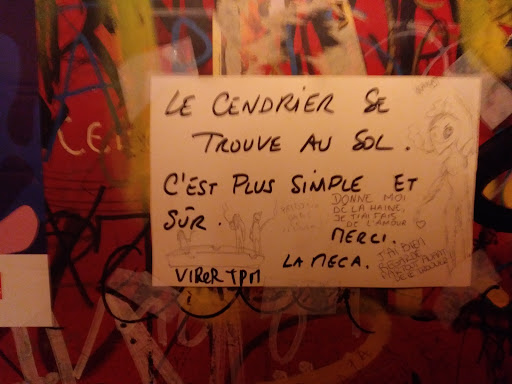 LE CENDRIER SE
TROUVE AU SOL.
C'EST PLUS SIMPLE ET
SÛR.
DONNE MOI
DE LA HAINE,
JE T'AI FAIS
DE L'AMOUR
MERCI.
LA MECA.
VIRER TPM
J'AI BIEN